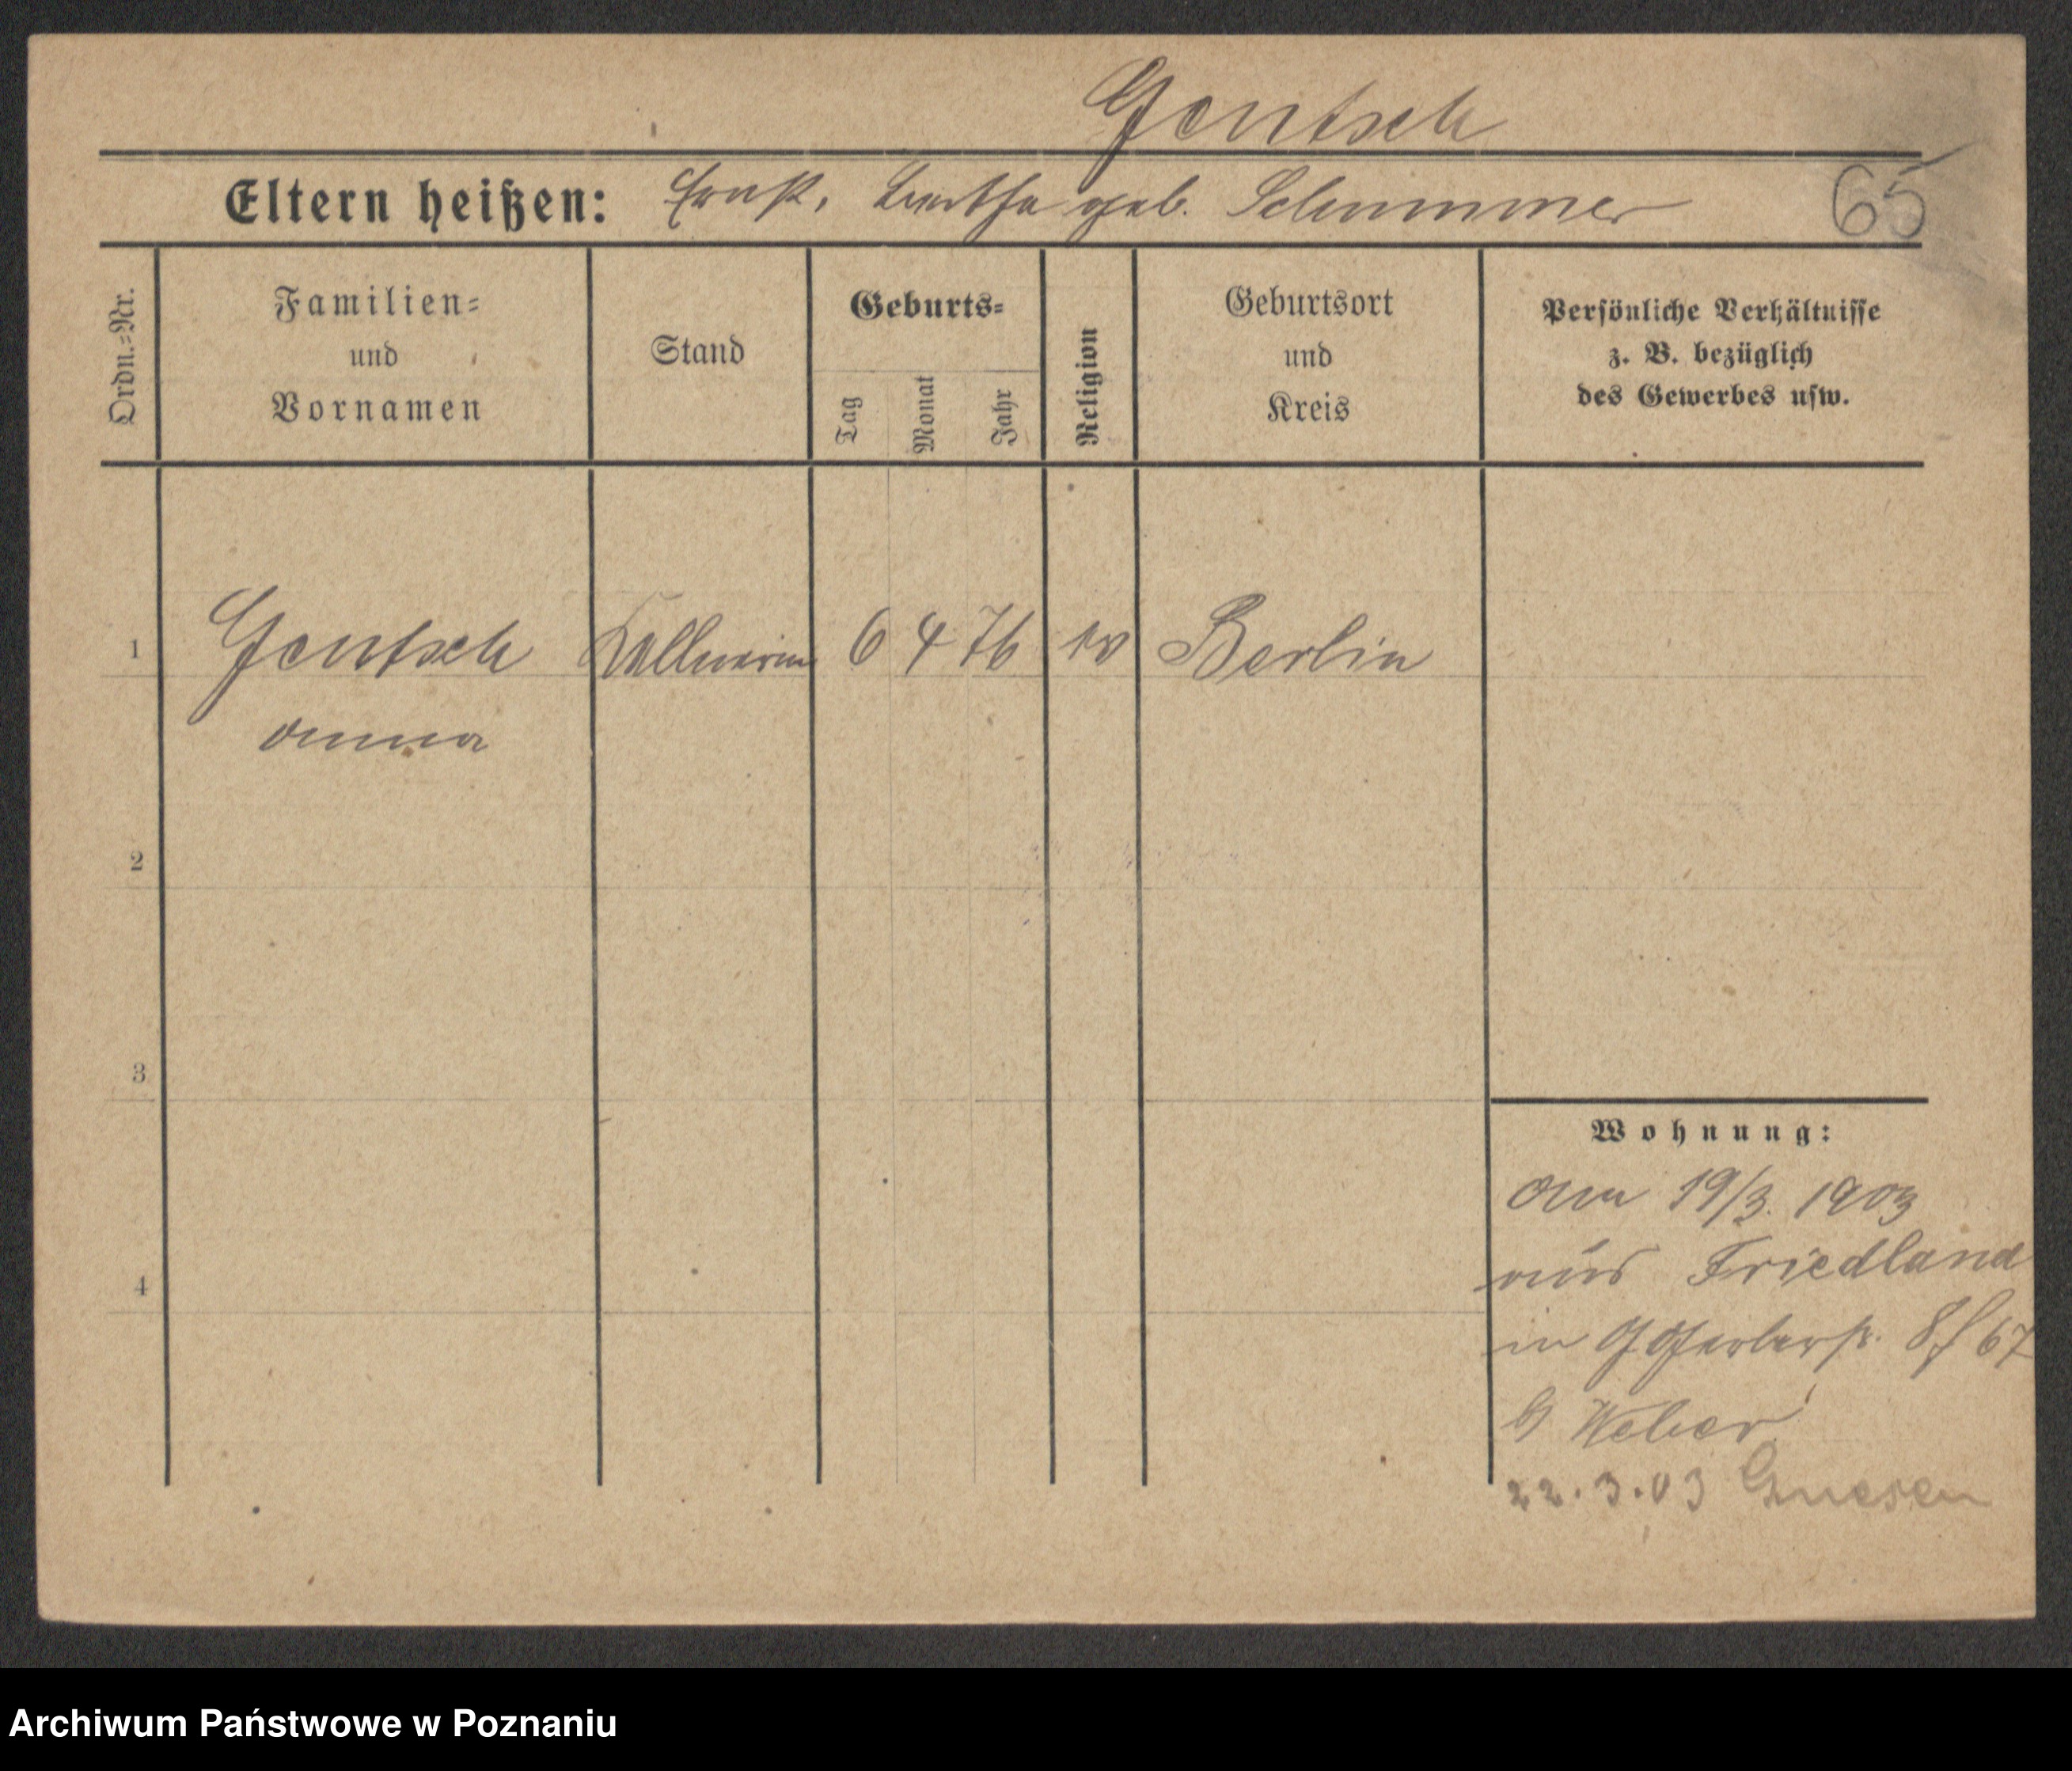 Gentsch
Eltern heißen: Ernst, Bertha geb. Schummer
65
Ordn.=Nr.
Familien=
und
Vornamen
Stand
Geburts=
Tag
Monat
Jahr
Religion
Geburtsort
und
Kreis
Persönliche Verhältnisse
z. B. bezüglich
des Gewerbes usw.
1 Gentsch Kellnerin 6 4 76 ev Berlin
Anna
2
3
4
Wohnung:
Am 19/3. 1903
aus Friedland
in Gr Gerberst. 67
b Weber
22.3.03 Gnesen
Archiwum Państwowe w Poznaniu